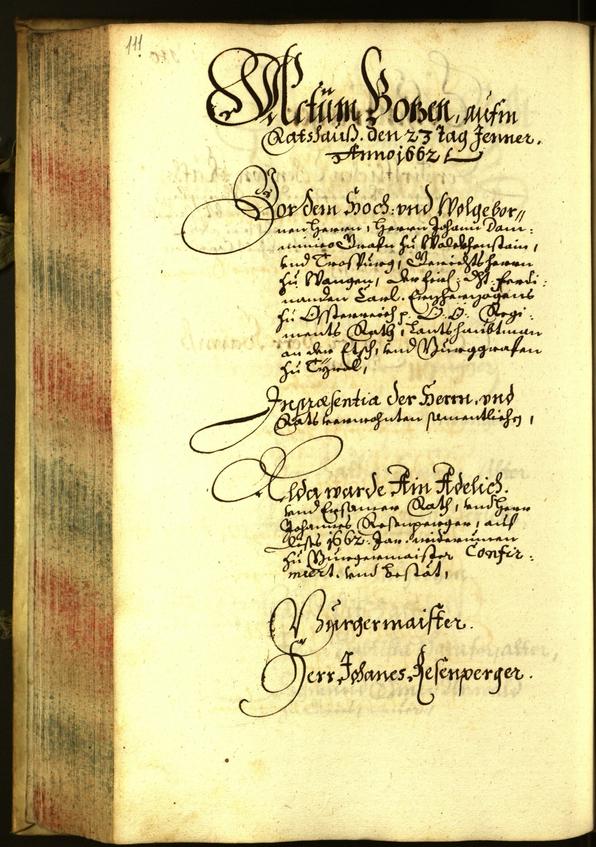 111
Actum Bozen, aufm
Rathauß. den 23 tag Jenner.
Anno 1662
Vor dem Hoch: vnd Wolgebor„
nen Herrn, Herrn Johann Dom:
inico Grafen zu Wolckhenstain,
vnd Trospurg, Gerichtsherrn
zu Wangen, der Fürstl: Dht: Ferdi:
nanden Carl. Erzherzogens
zu Össterreich p. O: Ö: Regi:
ments Rath, Lantshaubtman
an der Etsch, vnd Burggrafen
zu Tyrol,
In præsentia der Herrn, vnd
Ratsverwohnten samentlichen,
Alda warde Ain Adelich.
vnd Ersamer Rath, vnd Herr
Johannes Resenperger, auf
dises 1662: Jar widerumen
zu Burgermaister Confir:
miert. vnd bestät,
Bürgermaister.
Herr Johanes Resenperger.